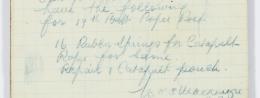 have the following
for 19th Batt
16 Rubber Springs for Catapult
Rope for same
Repair 1 Catapult pouch.